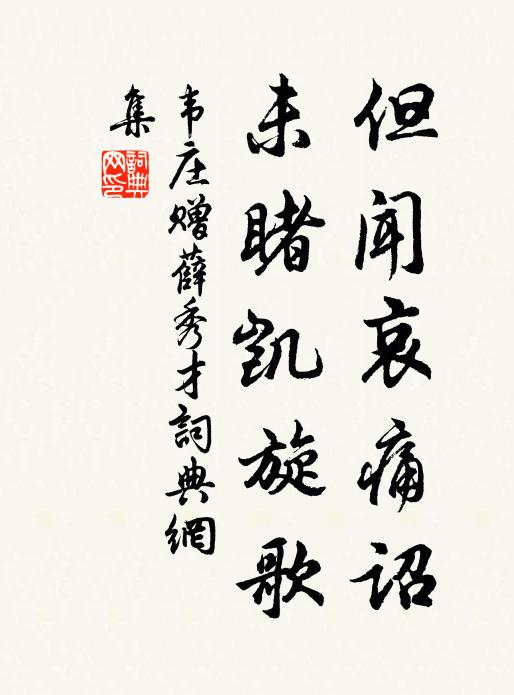 但闻哀痛诏
未睹凯旋歌
韦庄赠薛秀才詞典網
集
詞典
网印